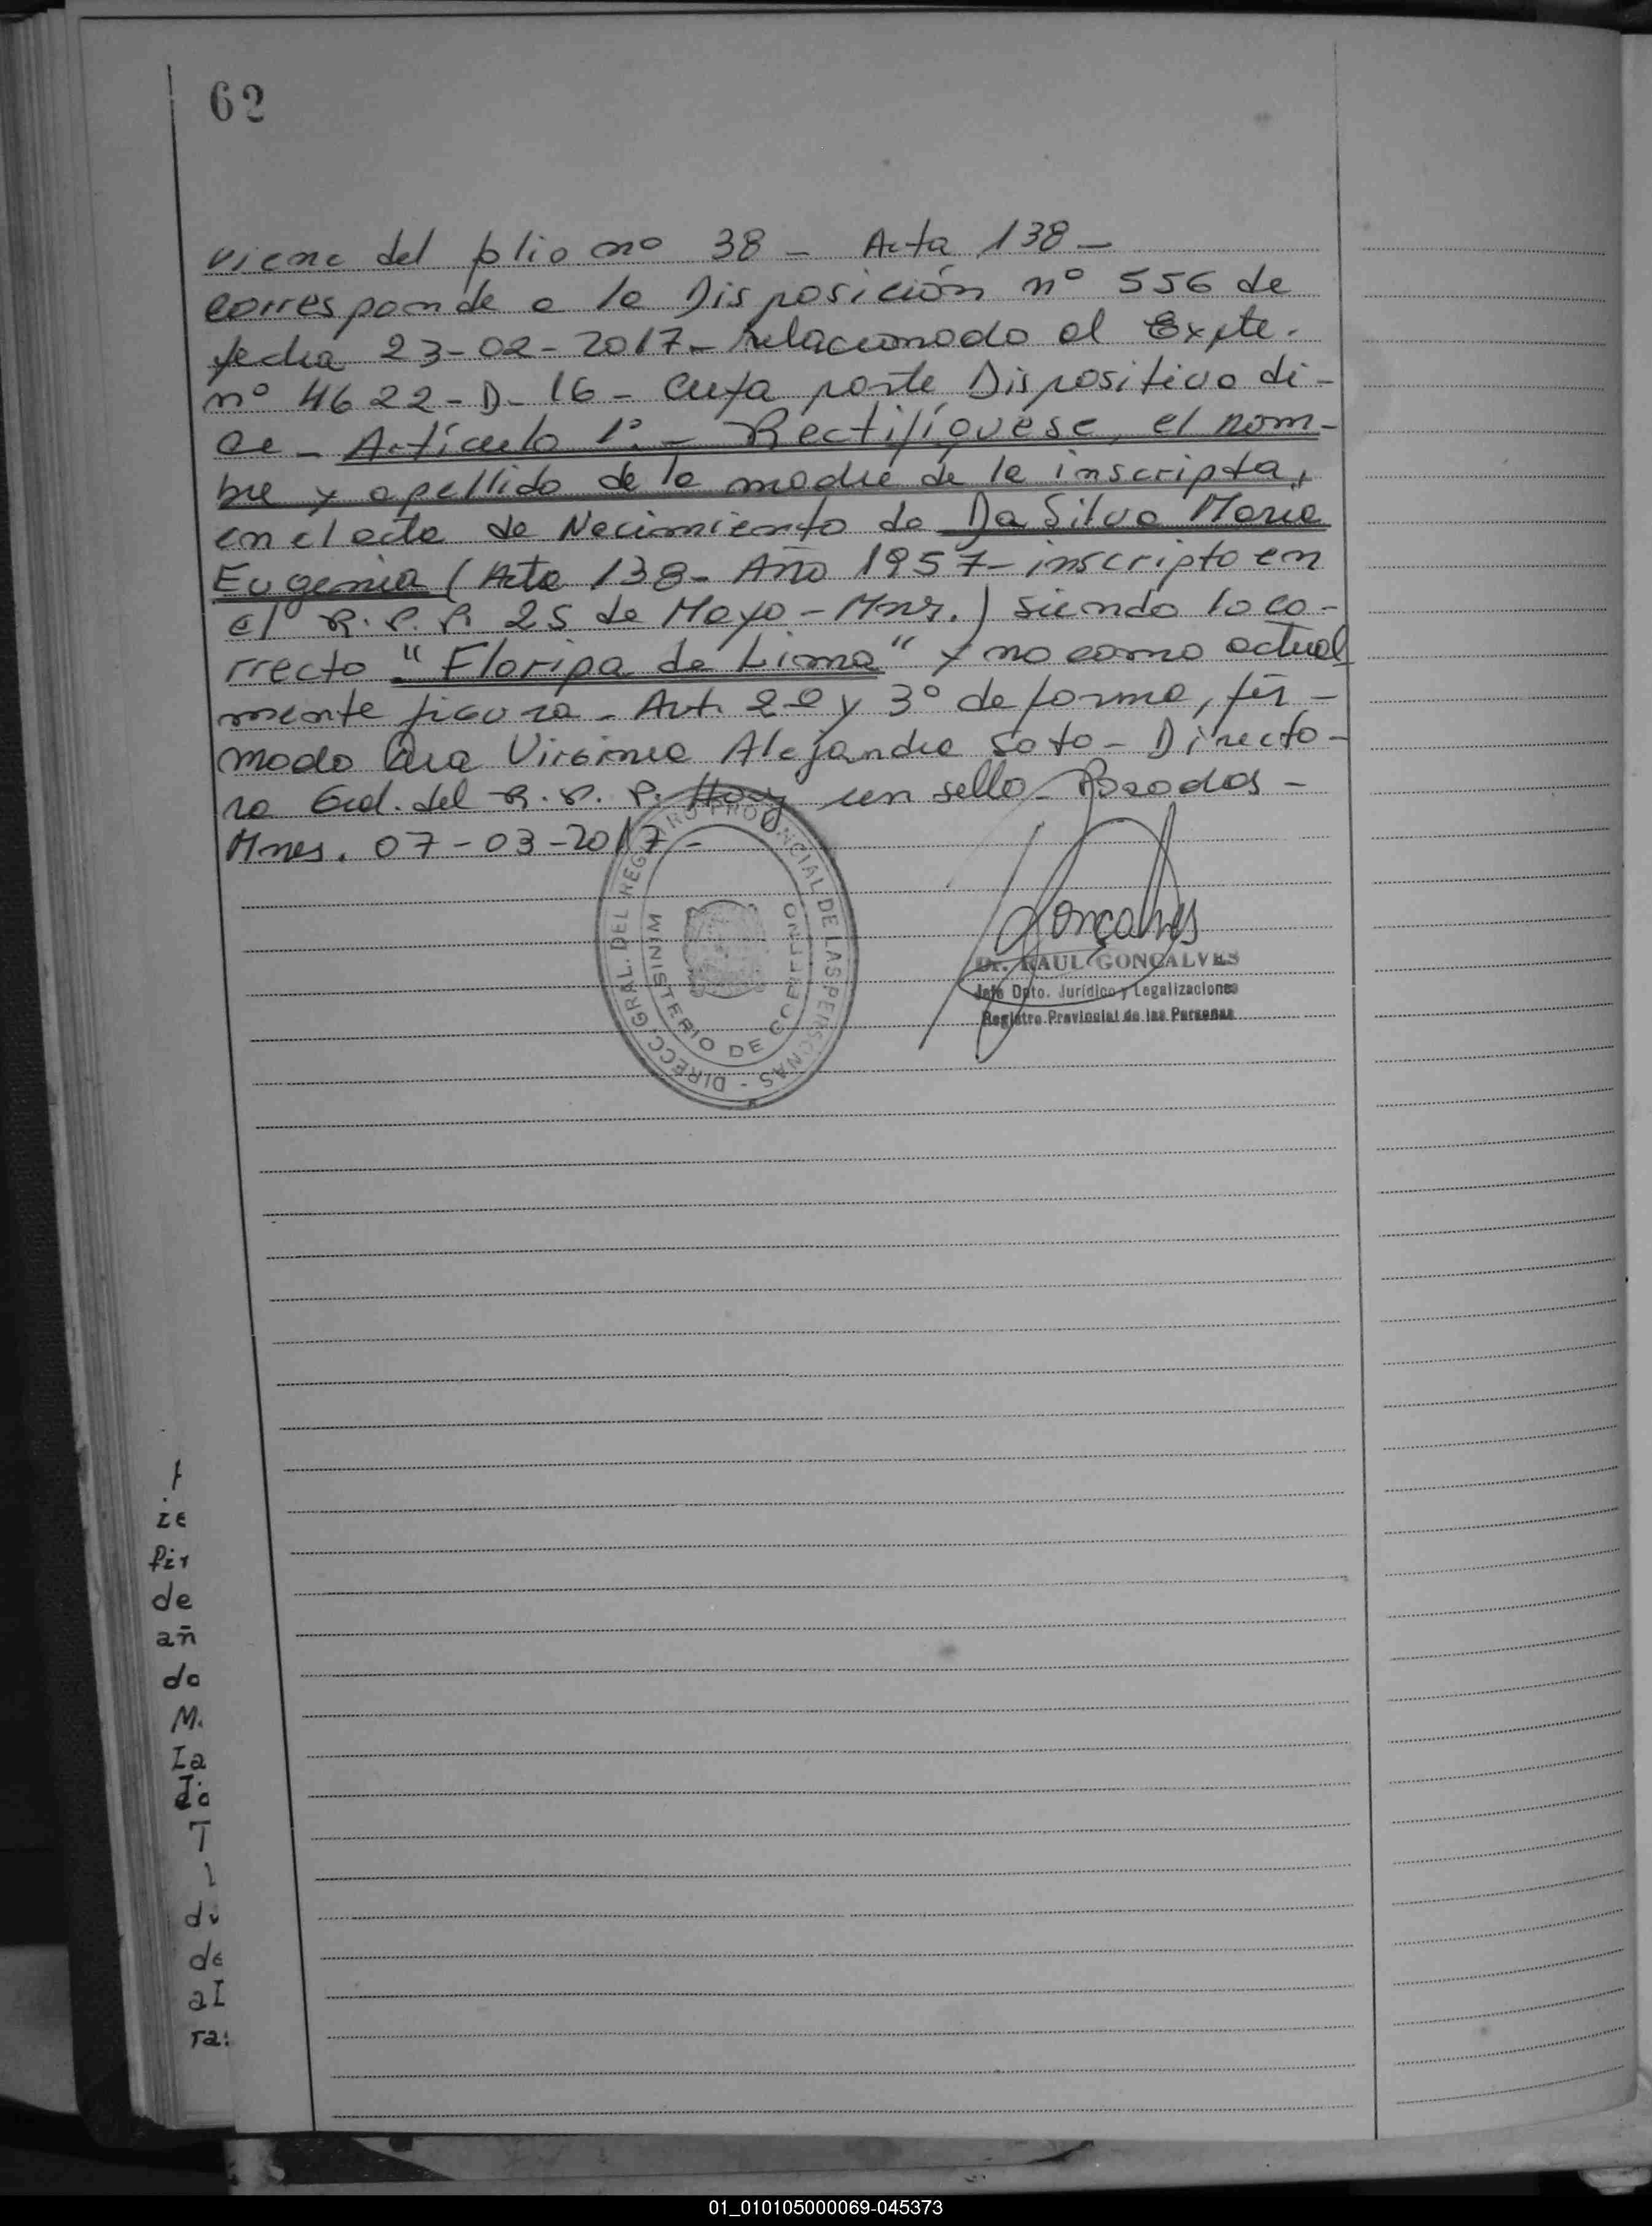 62
viene del folio nº 38 - Acta 138 -
corresponde a la Disposición nº 556 de
fecha 23-02-2017 - relacionado al Expte.
nº 4622 - D - 16 - cuya parte Dispositiva di-
ce - Artículo 1º. - Rectifíquese, el nom-
bre y apellido de la madre de la inscripta,
en el acta de Nacimiento de Da Silva Maria
Eugenia (Acta 138 - Año 1957 - inscripto en
el R.P.P. 25 de Mayo - Mnes.) siendo lo co-
rrecto "Floripa de Lima" y no como actual
mente figura - Art. 2º y 3º de forma, fir-
mado Virginia Alejandra Soto - Directo-
ra Gral. del R.P.P. Hay un sello - Posadas -
Mnes. 07-03-2017 -
DIRECC. GRAL. DEL REGISTRO PROVINCIAL DE LAS PERSONAS -
MINISTERIO DE GOBIERNO
Gonçalves
Dr. RAUL GONÇALVES
Jefe Dpto. Jurídico y Legalizaciones
Registro Provincial de las Personas
fir
de
añ
do
M.
La
T
di
de
al
ra:
01_010105000069-045373